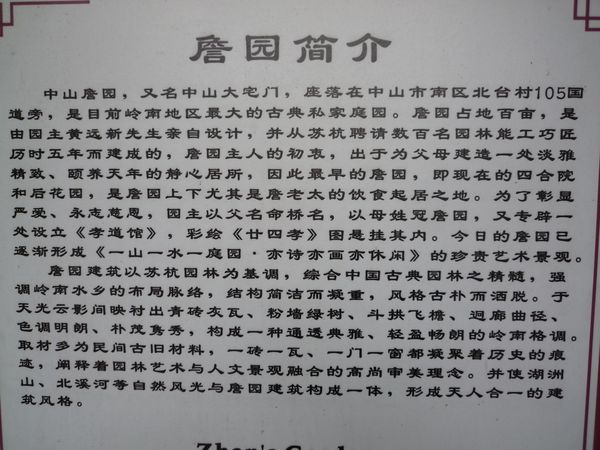 詹园简介
中山詹园，又名中山大宅门，座落在中山市南区北台村105国
道旁，是目前岭南地区最大的古典私家庭园。詹园占地百亩，是
由园主黄远新先生亲自设计，并从苏杭聘请数百名园林能工巧匠
历时五年而建成的，詹园主人的初衷，出于为父母建造一处淡雅
精致、颐养天年的静心居所，因此最早的詹园，即现在的四合院
和后花园，是詹园上下尤其是詹老太的饮食起居之地。为了彰显
严爱、永志慈恩，园主以父名命桥名，以母姓冠詹园，又专辟一
处设立《孝道馆》，彩绘《廿四孝》图悬挂其内。今日的詹园已
逐渐形成《一山一水一庭园·亦诗亦画亦休闲》的珍贵艺术景观。
詹园建筑以苏杭园林为基调，综合中国古典园林之精髓，强
调岭南水乡的布局脉络，结构简洁而凝重，风格古朴而洒脱。于
天光云影间映村出青砖灰瓦、粉墙绿树、斗拱飞檐、迴廊曲径、
色调明朗、朴茂隽秀，构成一种通透典雅、轻盈畅朗的岭南格调。
取材多为民间古旧材料，一砖一瓦、一门一窗都凝聚着历史的痕
迹，阐释着园林艺术与人文景观融合的高尚审美理念。并使湖洲
山、北溪河等自然风光与詹园建筑构成一体，形成天人合一的建
筑风格。